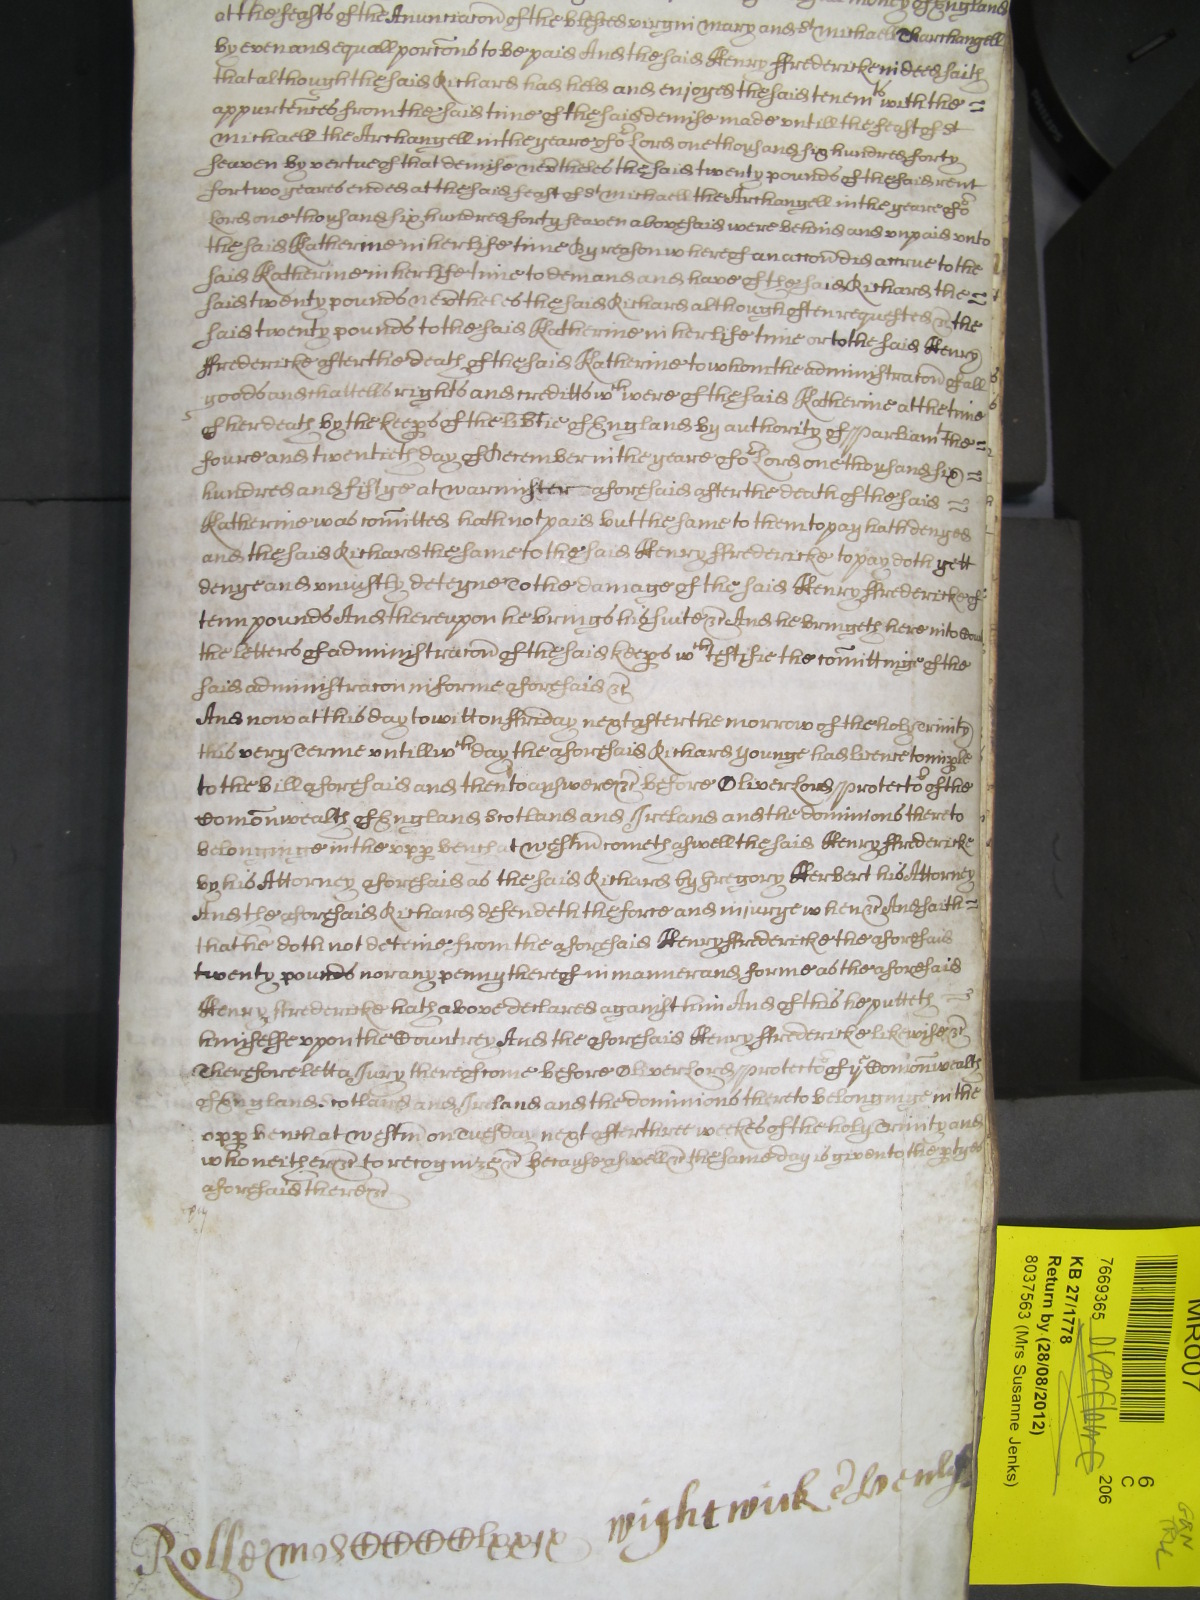 money of England
at the feasts of the Anunciacon of the blessed virgin mary and St michaell Tharchangell
by even and equall porcons to be paid And the said Henry ffredericke in deed saith
that although the said Richard had held and enjoyed the said tenemts with the =
appurtences from the said time of the said demise made untill the feast of St
michaell the Archangell in the yeare of or Lord one thousand six hundred forty
seaven by vertue of that demise nevtheles the said twenty pounds of the said rent
for two yeares ended at the said feast of St michaell the Archangell in the yeare of or
Lord one thousand six hundred forty seaven abovesaid were behind and unpaid unto
the said Katherine in her life time By reason whereof an accon did accrue to the
said Katherine in her life time to demand and have of the said Richard the =
said twenty pounds nevtheles the said Richard although often requested &c the
said twenty pounds to the said Katherine in her life time or to the said Henry
ffredericke after the death of the said Katherine to whom the administracon of all
goods and chattells rights and creditts wch were of the said Katherine at the time
of her death by the keeps of the libtie of England by authority of Parliamt the =
foure and twentieth day of December in the yeare of or Lord one thousand six =
hundred and fiftye at warmister aforesaid after the death of the said =
Katherine was comitted hath not paid but the same to them to pay hath denyed
and the said Richard the same to the said Henry ffredericke to pay doth yett
denye and uniustly deteyne To the damage of the said Henry ffredericke of
tenn pounds And thereupon he brings his suite &c And he bringeth here into Court
the letters of administracon of the said keeps wch testifie the comittinge of the
said administracon in forme aforesaid &c
And now at this day to witt on ffriday next after the morrow of the holy Trinity
this very Terme untill wch day the aforesaid Richard Younge had licence to imple
to the bill aforesaid and then to answere &c before Oliver Lord Protector of the
Comonwealth of England Scotland and Ireland and the dominions thereto
belonginge in the upp bench at Westm cometh aswell the said Henry ffredericke
by his Attorney aforesaid as the said Richard by Gregory Herbert his Attorney
And the aforesaid Richard defendeth the force and injurye when &c And saith =
that he doth not deteine from the aforesaid Henry ffredericke the aforesaid
twenty pounds nor any penny thereof in manner and forme as the aforesaid
Henry ffredericke hath above declared against him And of this he putteth =
himselfe upon the Countrey And the aforesaid Henry ffredericke likewise &c
Therefore lett a Jury thereof come before Oliver Lord Protector of ye Comonwealth
of England Scotland and Ireland and the dominions thereto belonginge in the
upp bench at Westm on Tuesday next after three weekes of the holy Trinity and
who neither &c to recognize &c because aswell &c the same day is given to the ptyes
aforesaid there &c
Rolls
wightwick
MR007
6
C
206
7669365
KB 27/1778
Return by (28/08/2012)
8037563 (Mrs Susanne Jenks)